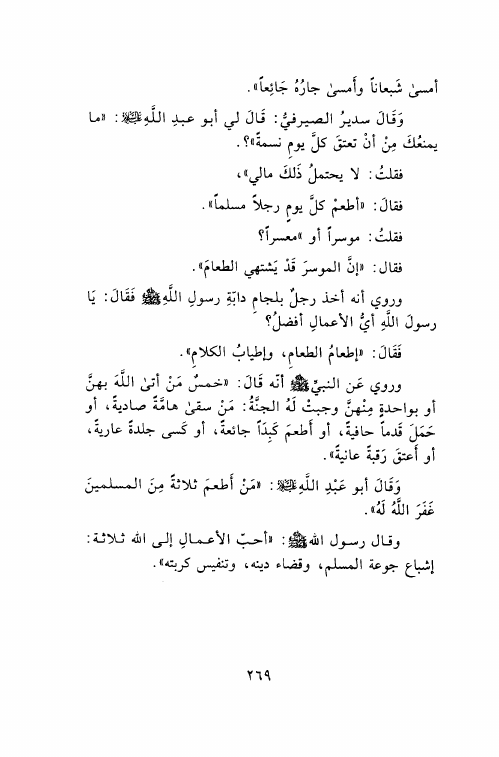 أمسىٰ شَبعاناً وأَمسىٰ جارُهُ جَائِعاً».
وَقَالَ سديرُ الصيرفيُّ: قَالَ لي أبو عبدِ اللَّهِ ﵇: «ما
يمنعُكَ مِنْ أنْ تعتقَ كلَّ يومٍ نسمةً»؟.
فقلتُ: لا يحتملُ ذَلكَ مالي»،
فقالَ: «أطعمْ كلَّ يومٍ رجلاً مسلماً».
فقلتُ: موسراً أو »معسراً؟
فقال: «إنَّ الموسرَ قَدْ يَشتهي الطعامَ».
وروي أنه أخذ رجلٌ بلجامِ دابّةِ رسولِ اللَّهِ ﷺ فَقَالَ: يَا
رسولَ اللَّهِ أيُّ الأعمالِ أفضلُ؟
فَقَالَ: «إطعامُ الطعامِ، وإطيابُ الكلامِ».
وروي عَن النبيِّ ﷺ أنّه قَالَ: «خمسٌ مَنْ أتىٰ اللَّهَ بهنَّ
أو بواحدةٍ مِنْهنَّ وجبتْ لَهُ الجنَّةُ: مَنْ سقىٰ هامَّةً صاديةً، أو
حَمَلَ قَدماً حافيةً، أو أَطعمَ كَبِدَاً جائعةً، أو كَسى جلدةً عاريةً،
أو أَعتقَ رَقبةً عانيةً».
وَقَالَ أبو عَبْدِ اللَّهِ ﵇: «مَنْ أَطعمَ ثلاثةً مِنَ المسلمينَ
غَفَرَ اللَّهُ لَهُ».
وقـال رسـول الله ﷺ: «أحبّ الأعمـالِ إلـى الله ثـلاثـة:
إشباع جوعة المسلم، وقضاء دينه، وتنفيس كربته».
٢٦٩